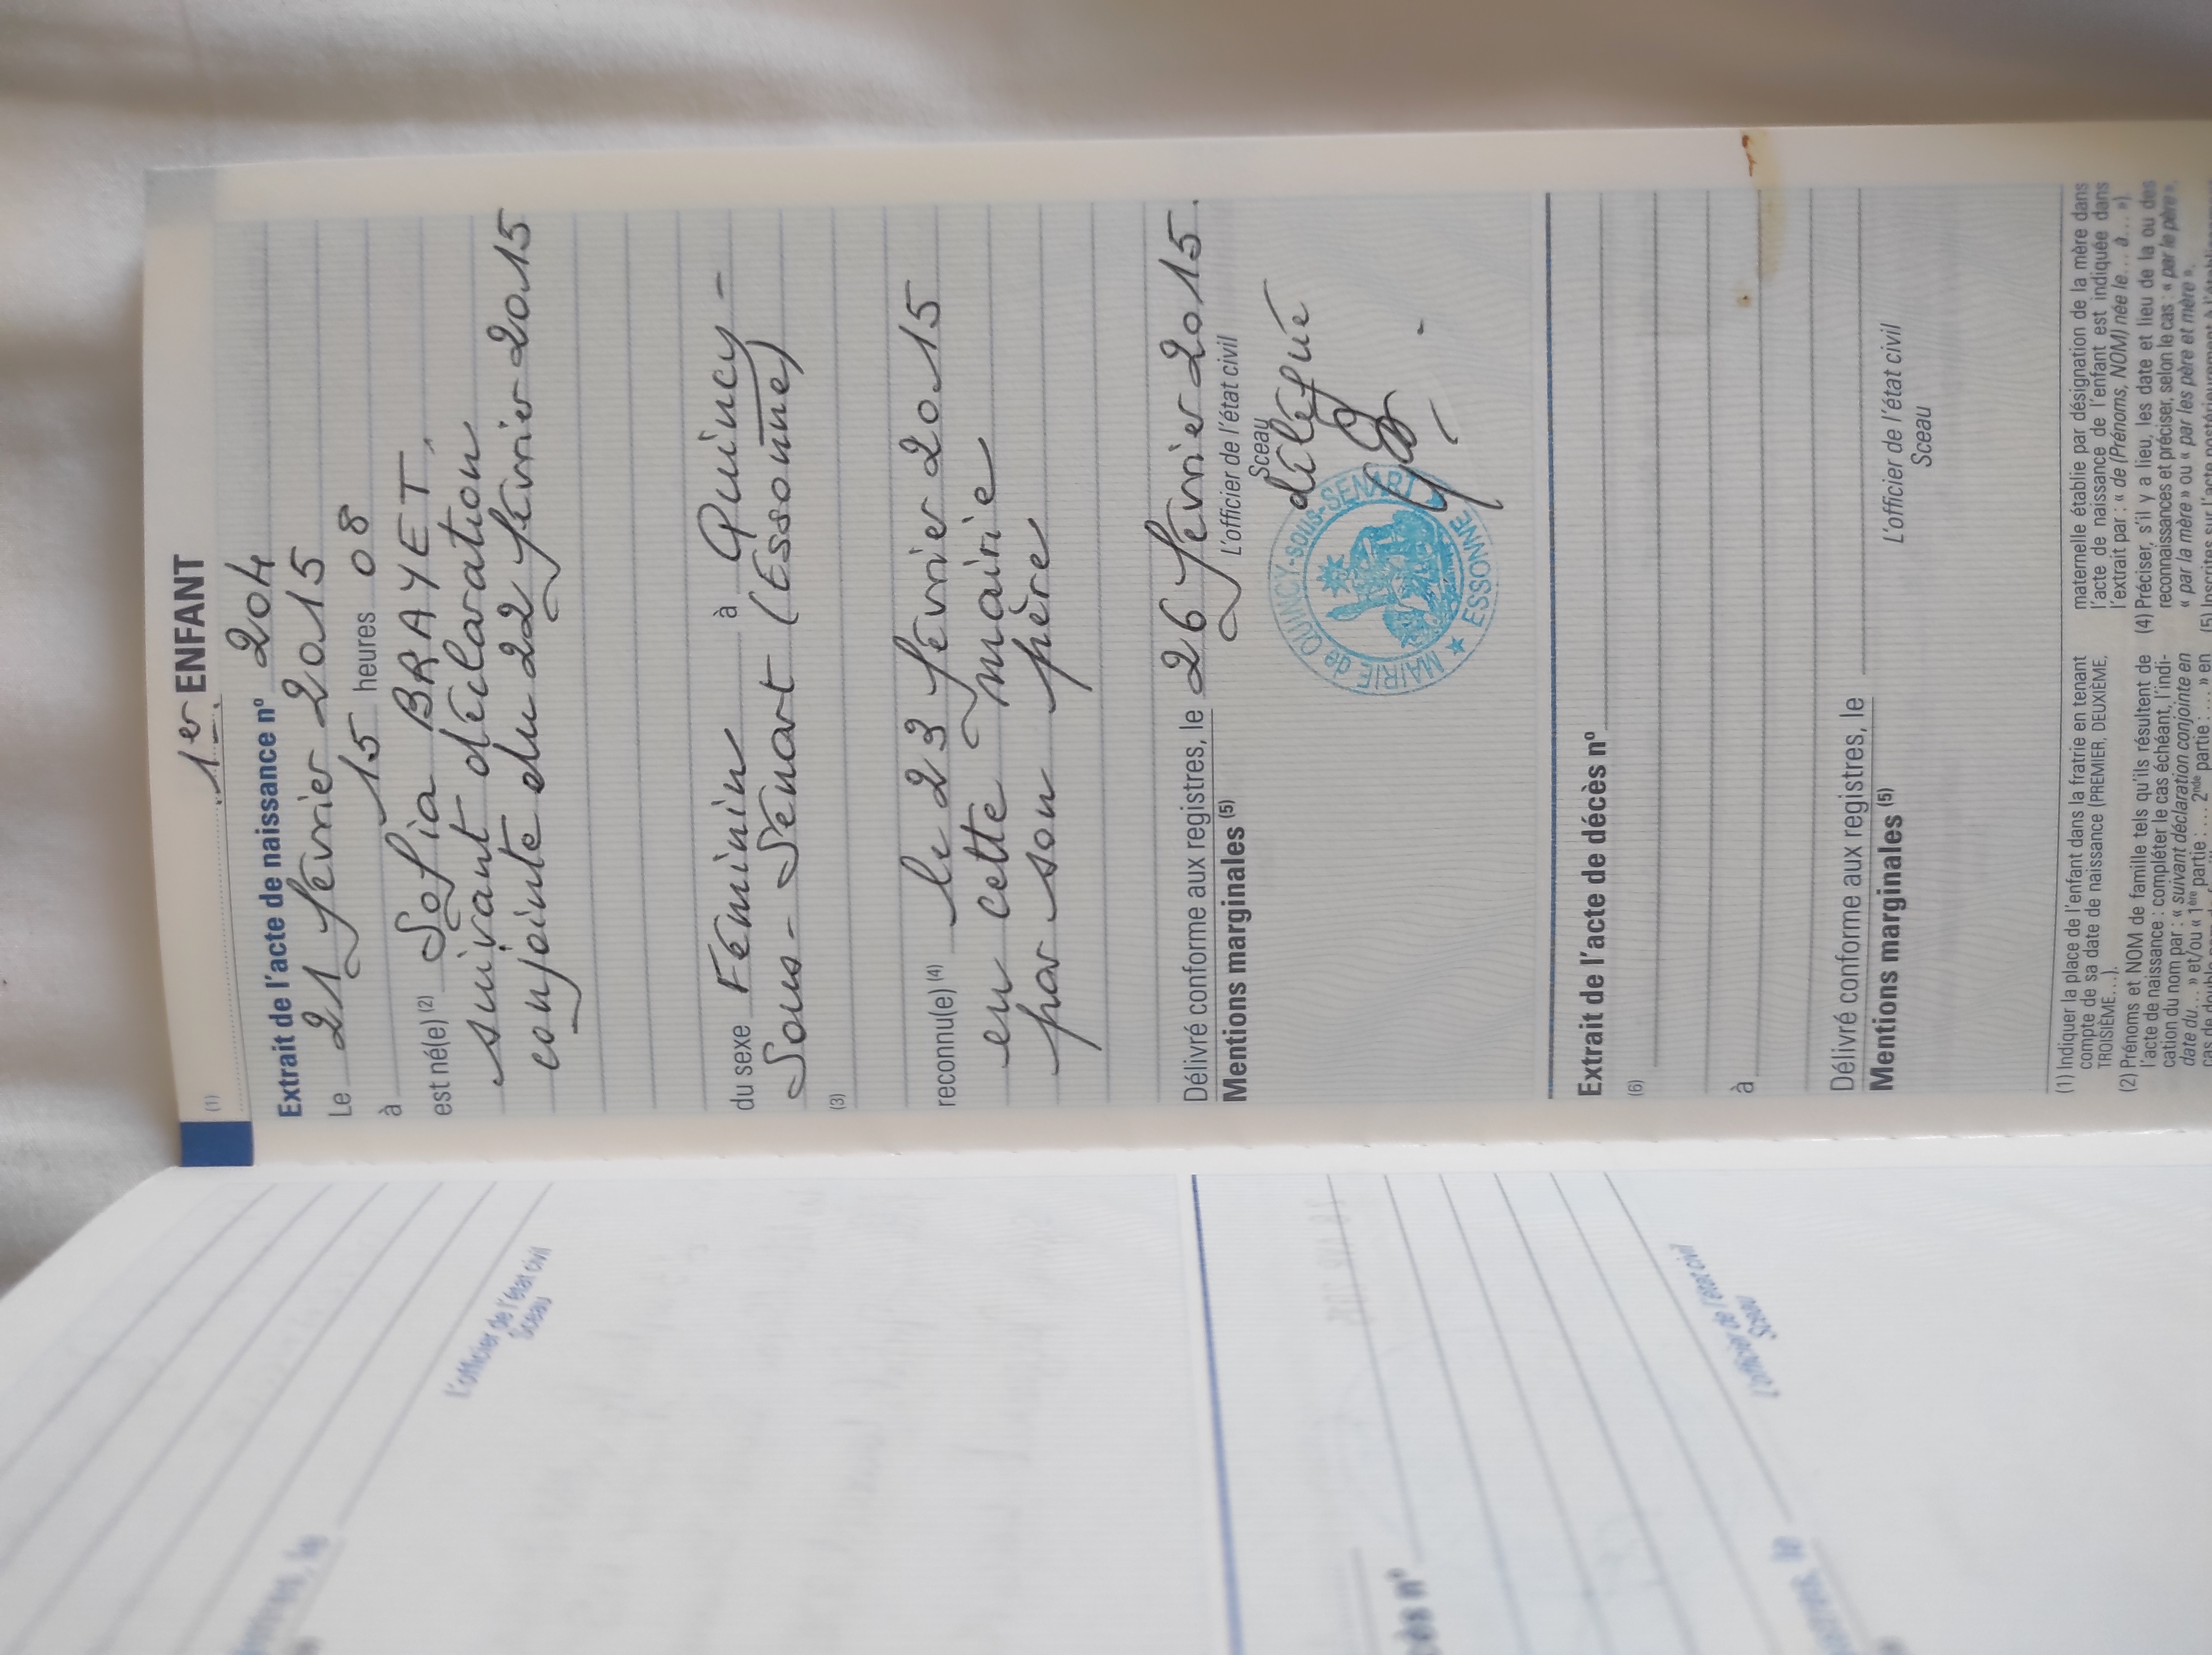 (1) 1er ENFANT
Extrait de l'acte de naissance nº 204
Le 21 février 2015
à 15 heures 08
est né(e) (2) Sofia BRAYET,
suivant déclaration
conjointe du 22 février 2015
du sexe Féminin à Quincy-
Sous-Sénart (Essonne)
(3)
reconnu(e) (4) le 23 février 2015
en cette mairie
par son père
Délivré conforme aux registres, le 26 février 2015.
Mentions marginales (5)
L'officier de l'état civil
Sceau
délégué
MAIRIE de QUINCY-sous-SENART
★ ESSONNE
Extrait de l'acte de décès nº
(6)
à
Délivré conforme aux registres, le
Mentions marginales (5)
L'officier de l'état civil
Sceau
(1) Indiquer la place de l'enfant dans la fratrie en tenant
compte de sa date de naissance (PREMIER, DEUXIÈME,
TROISIÈME...).
(2) Prénoms et NOM de famille tels qu'ils résultent de
l'acte de naissance : compléter le cas échéant, l'indi-
cation du nom par : « suivant déclaration conjointe en
date du... » et/ou « 1ère partie : .... 2nde partie : .... » en
maternelle établie par désignation de la mère dans
l'acte de naissance de l'enfant est indiquée dans
l'extrait par : « de (Prénoms, NOM) née le... à... »).
(4) Préciser, s'il y a lieu, les date et lieu de la ou des
reconnaissances et préciser, selon le cas : « par le père »,
« par la mère » ou « par les père et mère ».
L'officier de l'état civil
Sceau
L'officier de l'état civil
Sceau